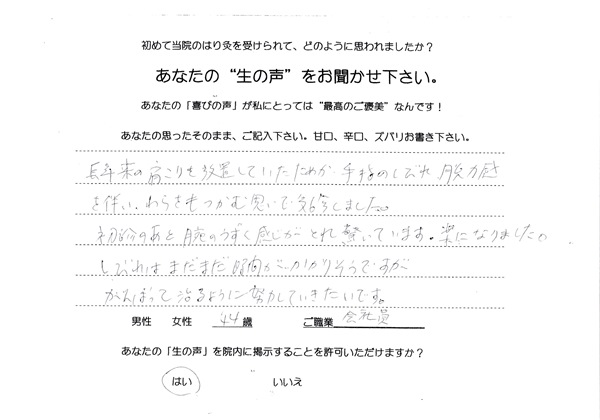 初めて当院のはり灸を受けられて、どのように思われましたか？
あなたの“生の声”をお聞かせ下さい。
あなたの「喜びの声」が私にとっては“最高のご褒美”なんです！
あなたの思ったそのまま、ご記入下さい。甘口、辛口、ズバリお書き下さい。
長年来の肩こりを放置していたためか 手指のしびれ 脱力感
を伴い、わらをもつかむ思いで来ました。
初診のあと 腕のうずく感じがとれ 驚いています。楽になりました。
しびれはまだまだ時間がかかりそうですが
がんばって治るように努力していきたいです。
男性 女性 44歳 ご職業 会社員
あなたの「生の声」を院内に掲示することを許可いただけますか？
はい いいえ